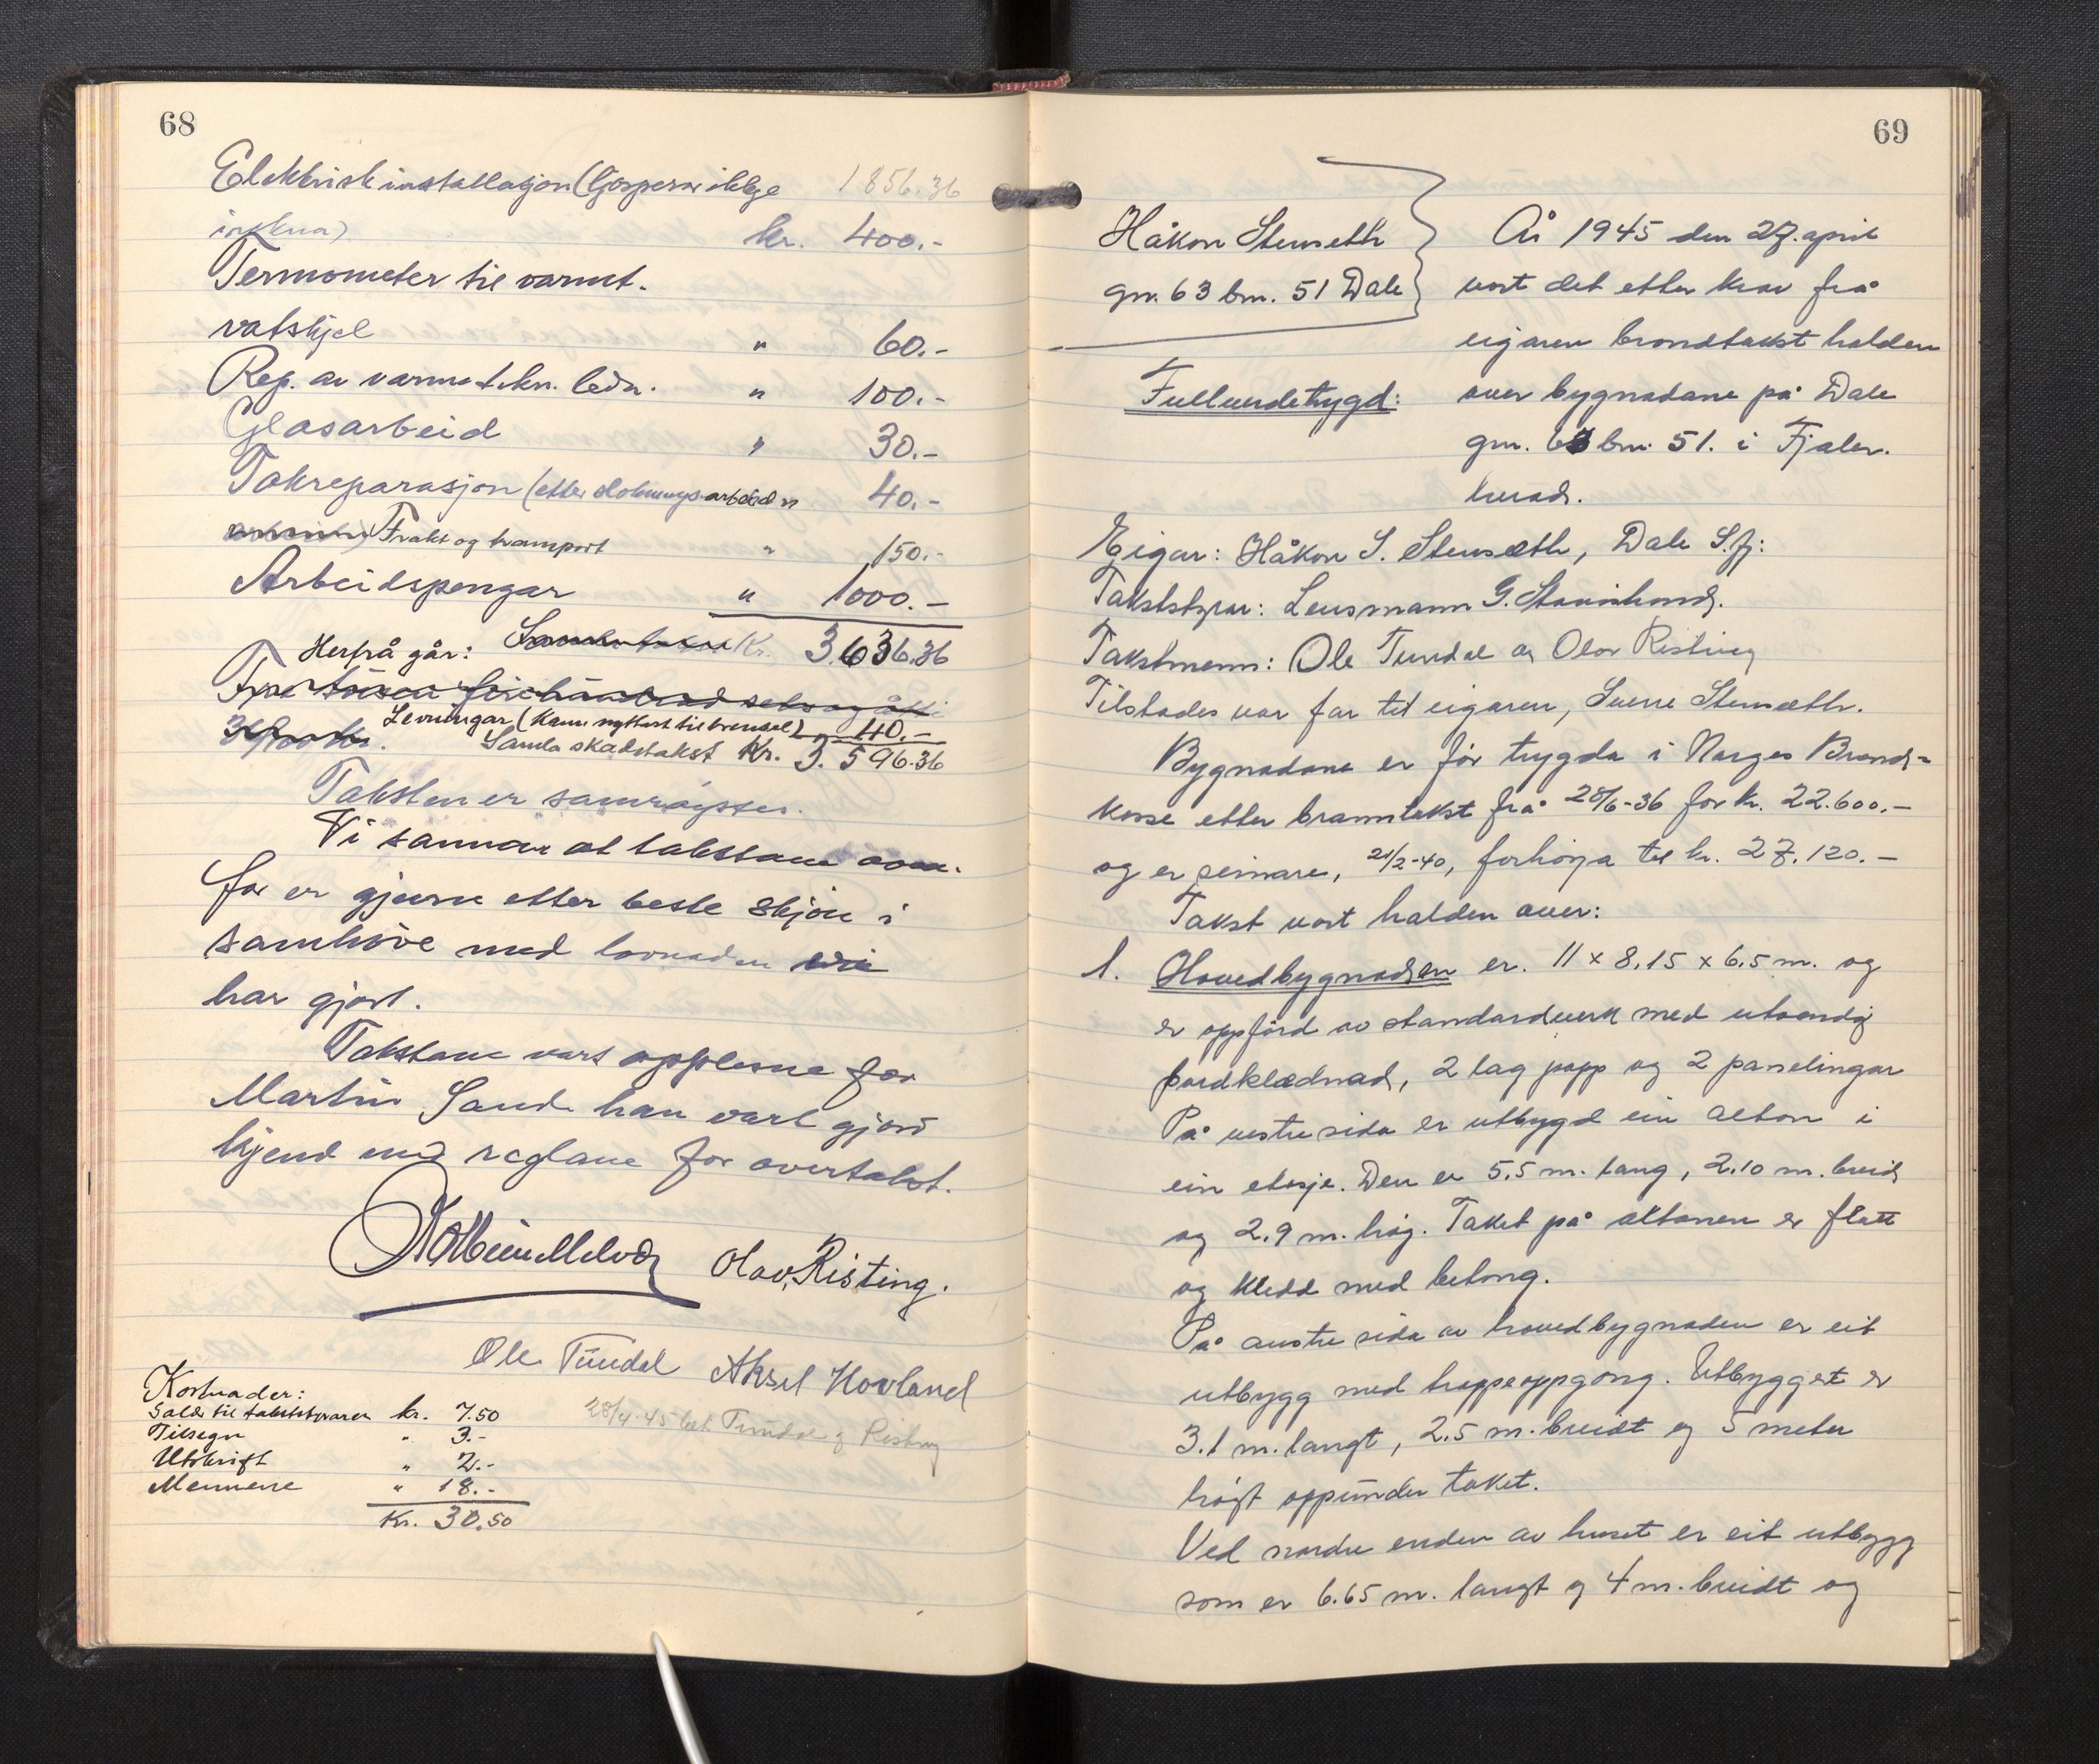 68
Elektrisk installasjon (Gospeson ikkje 1856.36
inklua) kr. 400.-
Termometer til varmt.
vatskjel " 60.-
Rep. av varmetekn. ledn. " 100.-
Glasarbeid " 30.-
Takreparasjon (etter slokningsarbeid " 40.-
Frakt og transport " 150.-
Arbeidspengar " 1000.-
Herfrå går: Samla takst Kr. 3.636.36
Levningar (kann nyttast til brensel) " 40.-
Samla skadetakst Kr. 3.596.36
Taksten er samrøystes.
Vi sannar at takstane ovan-
for er gjevne etter beste skjön i
samhöve med lovnaden vi
har gjort.
Takstane vart opplesne for
Martin Sande han vart gjord
kjend med reglane for overtakst.
Olav Risting.
Ole Tundal Aksel Hovland
Kostnader:
Salär til takststyraren kr. 7.50
28/4-45 bet. Tundal og Risting
Tilsegn " 3.-
Utskrift " 2.-
Mennene " 18.-
Kr. 30.50
69
Håkon Stenseth
gn. 63 bn. 51 Dale
Fullverdetrygd:
År 1945 den 27. april
vart det etter krav frå
eigaren brandtakst halden
over bygnadane på Dale
gn. 63 bn. 51. i Fjaler.
herad.
Eigar: Håkon S. Stensæth, Dale S.fj:
Takststyrar: Lensmann G.
Takstmenn: Ole Tundal og Olav Risting
Tilstades var far til eigaren, Sverre Stensæth.
Bygnadane er för trygda i Norges Brand-
kasse etter branntakst frå 28/6-36 for kr. 22.600.-
og er seinare, 21/2-40, forhöya til kr. 27.120.-
Takst vart halden over:
1. Hovedbygnaden er. 11 x 8,15 x 6,5 m. og
er oppförd av standardverk med utvendig
bordklædnad, 2 lag papp og 2 panelingar
På vestre sida er utbygd ein altan i
ein etasje. Den er 5,5 m. lang, 2,10 m. breid
og 2,9 m. høg. Taket på altanen er flatt
og kledd med betong.
På austre sida av hovedbygnaden er eit
utbygg med trappeoppgong. Utbygget er
3.1 m. langt, 2.5 m. breidt og 5 meter
høgt oppunder taket.
Ved nordre enden av huset er eit utbygg
som er 6.65 m. langt og 4 m. breidt og